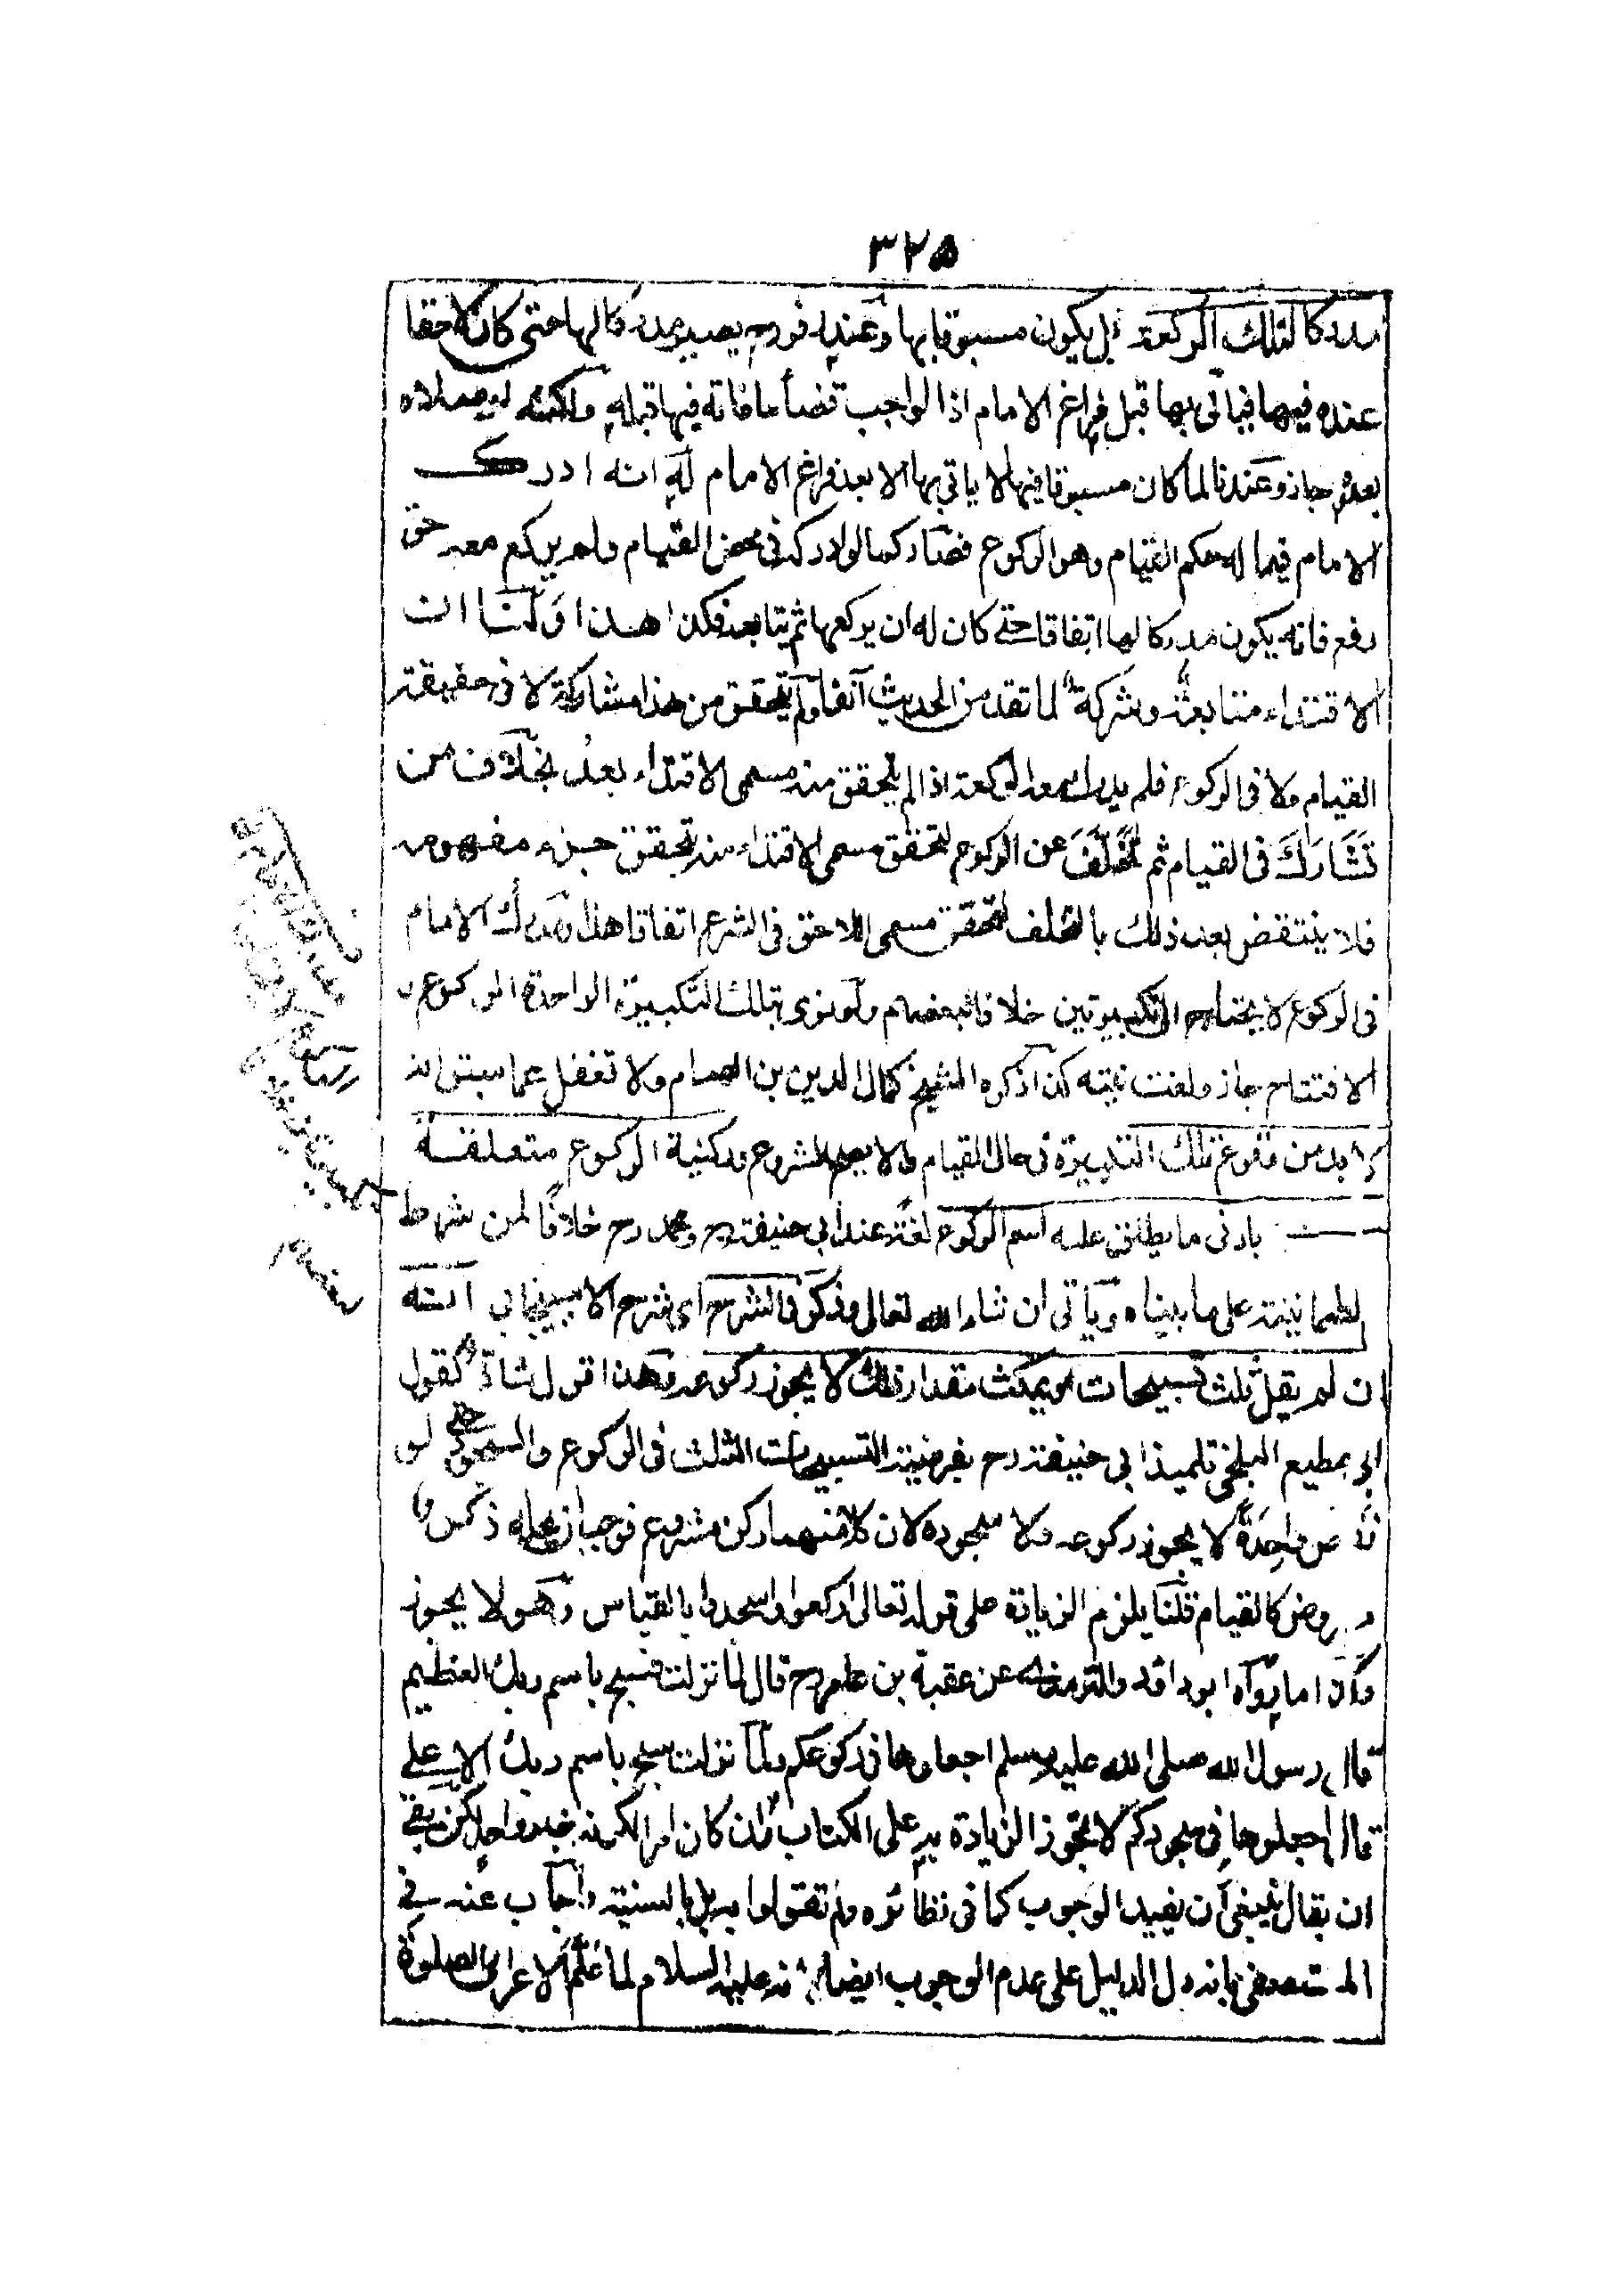 ٣٢٥
مدركا لتلك الركعة بل يكون مسبوقا بها وعند زفر رح يصير مدركا لها حتى كان لاحقا
عنده فيها فياتى بها قبل فراغ الامام اذ الواجب قضأ ما فاته فيها قبله ولكنه لو صلاه
بعده جاز وعندنا لما كان مسبوقا فيها لا ياتى بها الا بعد فراغ الامام له انه ادرك
الامام فيما له حكم القيام وهو الركوع فصار كما لو ادركه فى محض القيام ولم يركع معه حتى
رفع فانه يكون مدركا لها اتفاقا حتى كان له ان يركعها ثم يتابعه فكذا هذا ولنا ان
الاقتداء متابعة وشركة لما تقدم من الحديث آنفا ولم يتحقق من هذا مشاركة لا فى حقيقة
القيام ولا فى الركوع فلم يدرك معه الركعة اذا لم يتحقق منه مسمى الاقتداء بعد بخلاف من
تشارك فى القيام ثم تخلف عن الركوع لتحقق مسمى الاقتداء منه بتحقق جزء مفهومه
فلا ينتقض بعد ذلك بالتخلف لتحقق مسمى اللاحق فى الشرع اتفاقا هذا ومدرك الامام
فى الركوع لا يحتاج الى تكبيرتين خلافا لبعضهم ولو نوى بتلك التكبيرة الواحدة الركوع لا
الافتتاح جاز ولغت نيته كذا ذكره الشيخ كمال الدين بن الهمام ولا تغفل عما سبق انه
لا بد من وقوع تلك التكبيرة فى حال القيام والا يصح الشروع وركنية الركوع متعلقة
بادنى ما يطلق عليه اسم الركوع لغة عند ابى حنيفة رح ومحمد رح خلافا لمن شرط
الطمانينة على ما بيناه وياتى ان شاء الله تعالى وذكر فى الشرح اى شرح الاسبيجابى انه
ان لم يقل ثلث تسبيحات او يمكث مقدار ذلك لا يجوز ركوعه وهذا قول شاذ كقول
ابى مطيع البلخى تلميذ ابى حنيفة رح بفرضية التسبيحات الثلث فى الركوع والسجود حتى لو
نقص واحدة لا يجوز ركوعه ولا سجوده لان كلا منهما ركن مشروع فوجب ان يحله ذكر
مفروض كالقيام قلنا يلزم الزيادة على قوله تعالى اركعوا واسجدوا بالقياس وهو لا يجوز
وكذا ما رواه ابو داود والترمذى عن عقبة بن عامر رح قال لما نزلت فسبح باسم ربك العظيم
قال رسول الله صلى الله عليه وسلم اجعلوها فى ركوعكم ولما نزلت سبح باسم ربك الاعلى
قال اجعلوها فى سجودكم لا تجوز الزيادة به على الكتاب وان كان امرا لكونه خبر واحد لكن بقى
ان يقال ينبغى ان يفيد الوجوب كما فى نظائره ولم تقولوا به بل بالسنية واجاب عنه فى
المستصفى بانه دل الدليل على عدم الوجوب ايضا لانه عليه السلام لما علم الاعرابى الصلوة